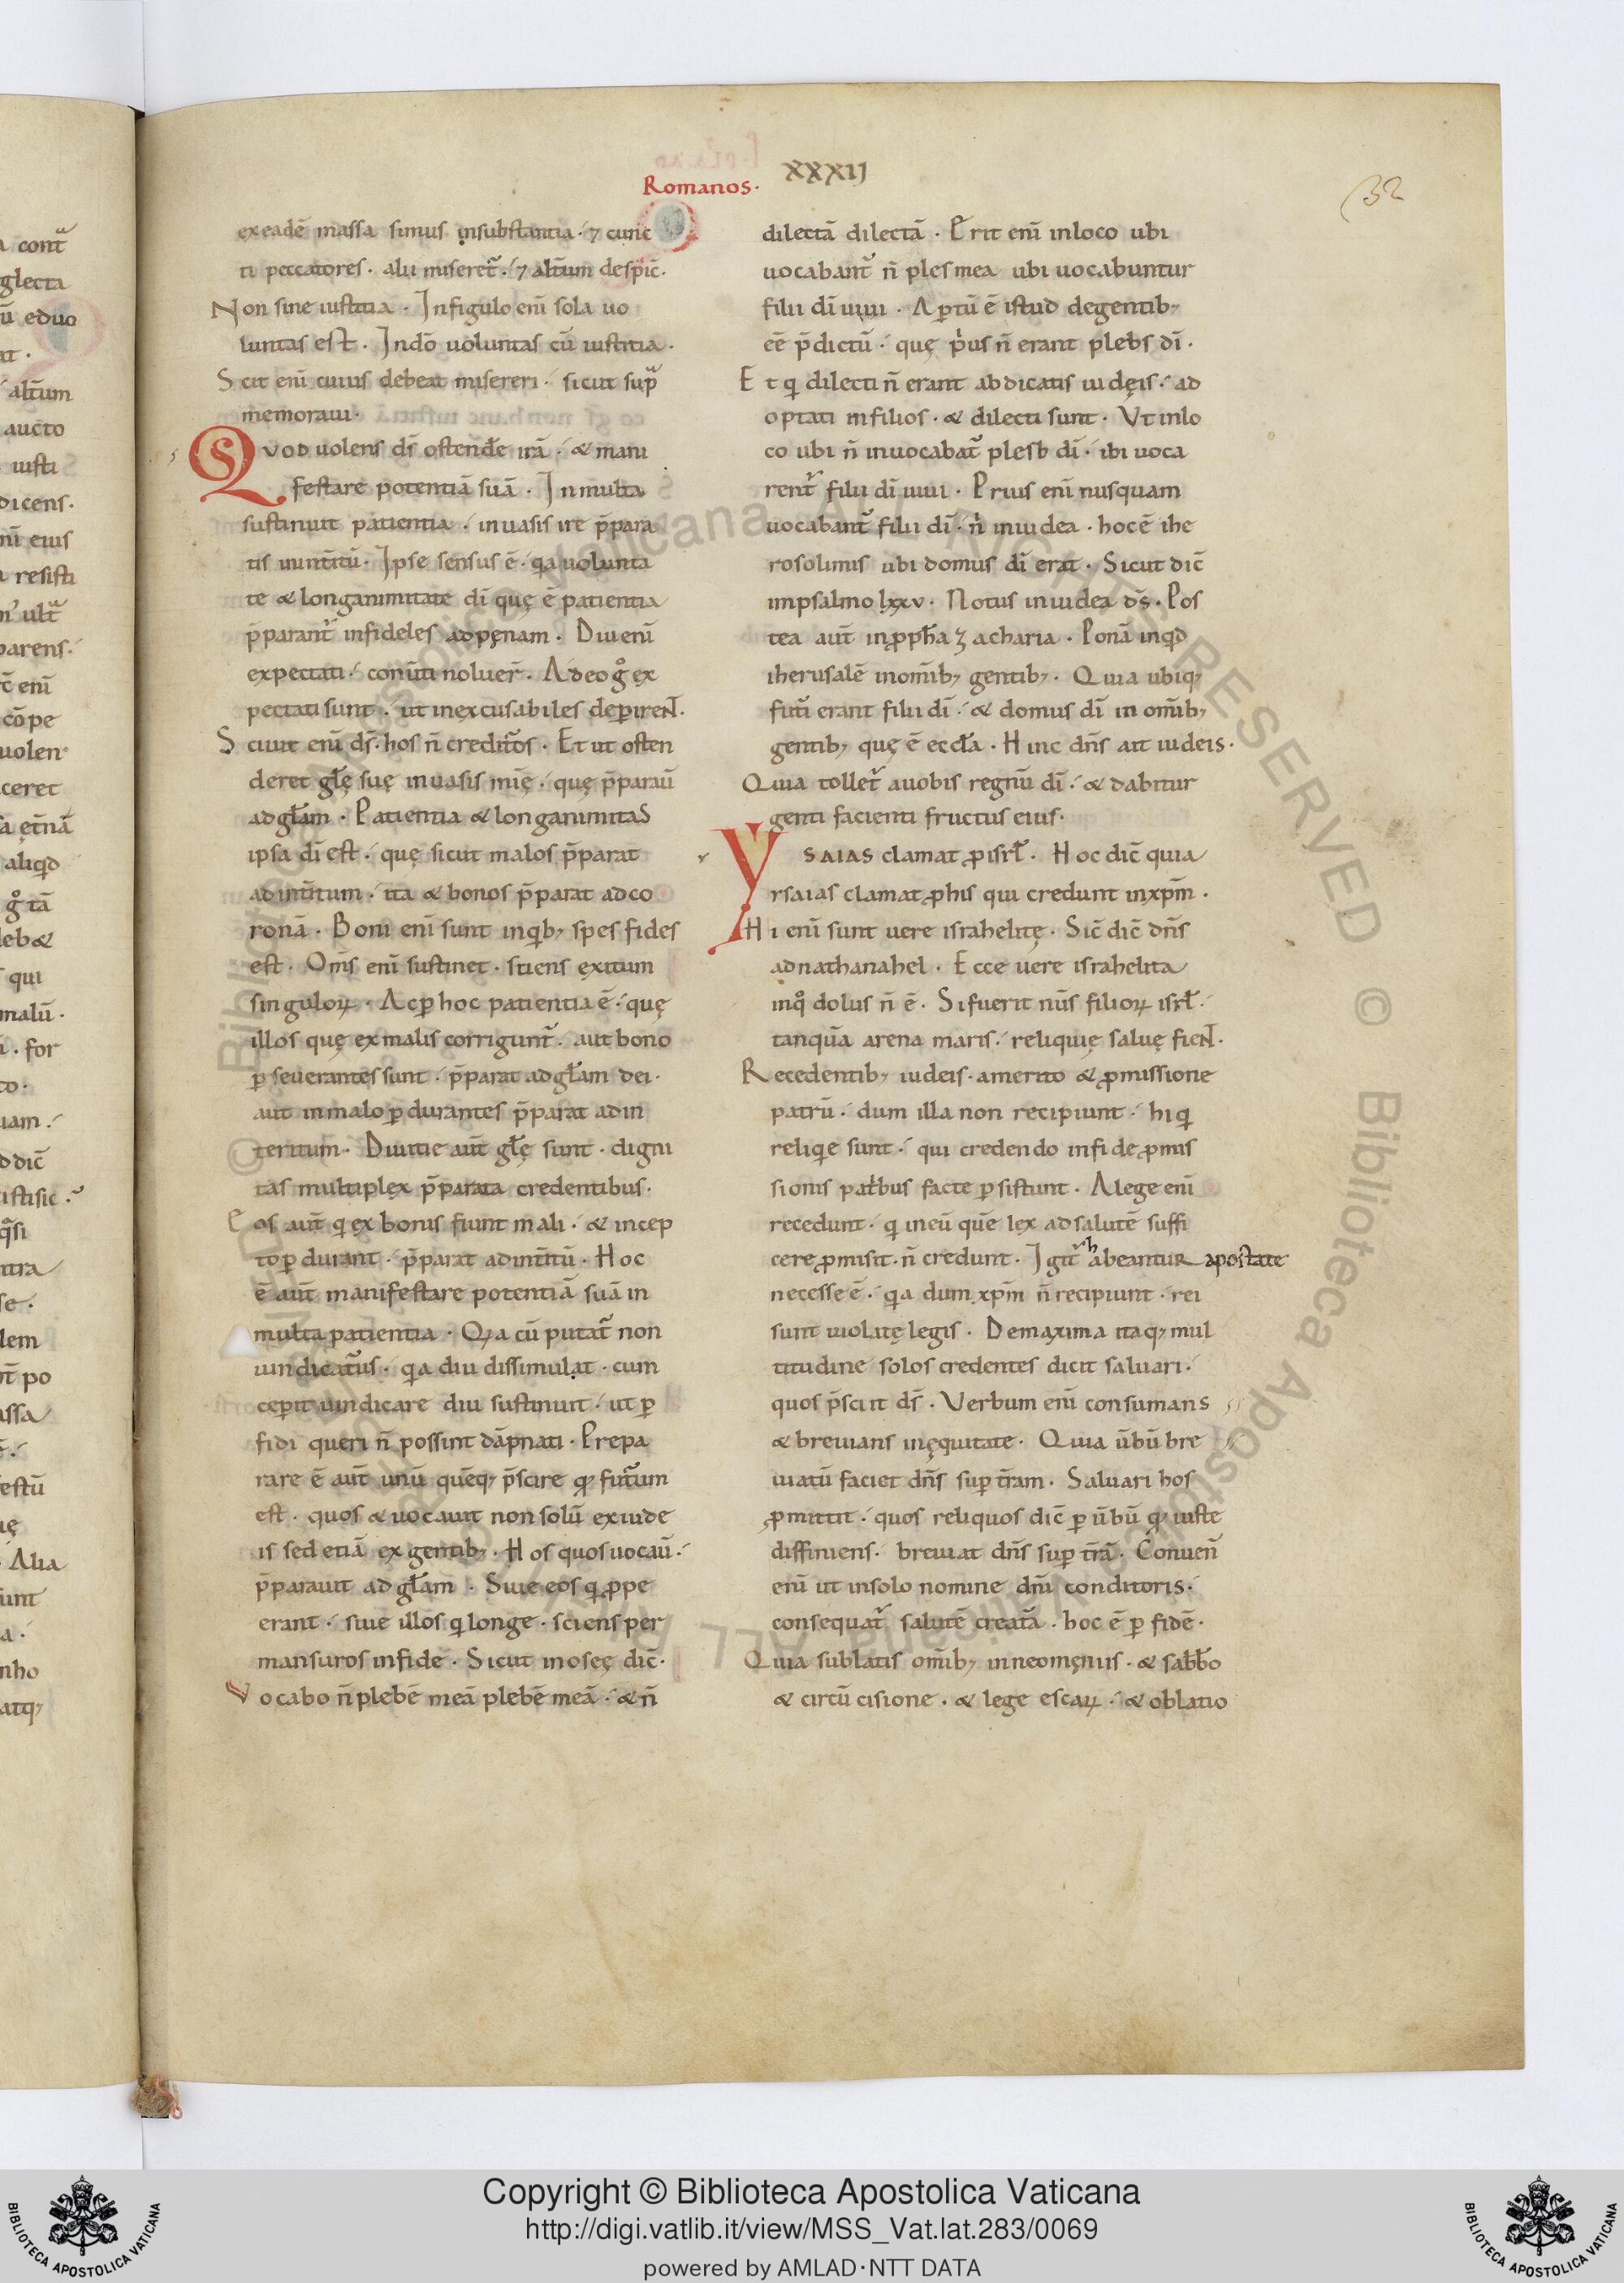 XXXIJ
Romanos·
32
exeadē massa simus insubstantia · ⁊ cunc
ti peccatores · alii miseret᷑ · ⁊ alt᷑um despic̄·
Non sine iustitia · Infigulo eni᷑ sola uo
luntas est · Indō uoluntas cū iustitia ·
Scit eni᷑ cuius debeat misereri · sicut sup̄
memoraui·
QVOD uolens ds̄ ostend̄e irā · & mani
festare potentiā suā · Inmulta
sustinuit patientia · inuasis ire p̄para
tis in int̄itū · Ipse sensus ē · qia uolunta
te & longanimitate dī quę ē patientia
p̄parant᷑ infideles adpęnam · Diu enī
expectati · conūti noluer̄ · Adeo gͦ ex
pectati sunt · ut inexcusabiles depirent·
Sciuit enī ds̄ · hos n̄ creditᷓos · Et ut osten
deret gl̄ę suę inuasis mīę · quę p̄parauˉ
adgl̄am · Patientia & longanimitas
ipsa dī est · quę sicut malos p̄parat
adint̄itum · ita & bonos p̄parat adco
ronā · Boni enī sunt inqib; spes fidei
est · Om̄s enī sustinet · sciens exitum
singuloꝝ · Acꝑ hoc patientia ē · quę
illos quę exmalis corrigunt᷑ · aut bono
ꝑseuerantes sunt · p̄parat adgl̄am dei·
aut inmalo ꝑdurantes p̄parat adin
teritum · Diuitie aut̄ gl̄ę sunt · digni
tas multiplex p̄parata credentibus·
Eos aut̄ qi ex bonis fiunt mali · & incep
to ꝑdurant · p̄parat adint̄itū · Hoc
ē aut̄ manifestare potentiā suā in
multa patientia · Qia cū putat᷑ non
uindicatᷓus · qia diu dissimulat · cum
ceperit uindicare diu sustinuit · ut ꝑ
fidi queri n̄ possint dāpnati · Prepa
rare ē aut̄ unū quēq; p̄scire qd̄ futᷓum
est · quos & uocauit non solū exiude
is sed etiā ex gentib; · Hos quos uocauˉ·
p̄parauit ad gl̄am · Siue eos qi ꝓpe
erant · siue illos qi longe · sciens per
mansuros infide · Sicut in oseę dic̄·
Vocabo n̄ plebē meā plebē meā · & n̄
dilectā dilectā · Erit enī inloco ubi
uocabant᷑ n̄ ples mea ubi uocabuntur
filii dī uiui · Aꝑtū ē istud degentib;
eē p̄dictū · quę pͥus n̄ erant plebs dī ·
Et qi dilecti n̄ erant abdicatis iudęis · ad
optati infilios · & dilecti sunt · Vt inlo
co ubi n̄ inuocabat᷑ plesb dī · ibi uoca
rent᷑ filii dī uiui · Prius enī nusquam
uocabant᷑ filii dī · nͥ iniudea · hoc ē ihe
rosolimis ubi domus dī erat · Sicut dic̄
inpsalmo lxxv · Notus iniudea ds̄ · Pos
tea aut̄ inꝓpħa Zacharia · Ponā inqd̄
iherusalē inomīb; gentib; · Quia ubiq;
futi᷑ erant filii dī · & domus dī in omīb;
gentib; quę ē eccl̄a · Hinc dn̄s ait iudeis·
Quia tollet᷑ auobis regnū dī · & dabitur
genti facienti fructus eius·
YSAIAS clamat ꝓisrł · Hoc dic̄ quia
ysaias clamat ꝓhis qui credunt inxpm̄ ·
Hi enī sunt uere israhelitę · Sic̄ dic̄ dn̄s
adnathanahel · Ecce uere israhelita
inqͦ dolus n̄ ē · Sifuerit nūs filioꝝ isrł·
tanquā arena maris · reliquię saluę fient·
Recedentib; iudeis · amerito & ꝓmissione
patrū · dum illa non recipiunt · hi qi
reliqie sunt · qui credendo infide ꝓmis
sionis patribus facte ꝑsistunt · Alege enī
recedunt · qi ineū quē lex adsalutē suffi
cere ꝓmisit · n̄ credunt · Igit᷑ habeantur apostate
necesse ē · qia dum xpm̄ n̄ recipiunt · rei
sunt uiolatę legis · Demaxima itaq; mul
titudine solos credentes dicit saluari·
quos p̄sciit ds̄ · Verbum enī consumans
& breuians inęquitate · Quia ūbū bre
uiatū faciet dn̄s suꝑ tr̄am · Saluari hos
ꝓmittit · quos reliquos dic̄ ꝑ ūbū qd̄ iuste
diffiniens · breuiat dn̄s suꝑ tr̄ā · Conuen̄
enī ut insolo nomine dn̄i conditoris·
consequat᷑ salutē creatᷓa · hoc ē ꝑ fidē·
Quia sublatis omīb; inneomęniis · & sabb̄o
& circū cisione · & lege escaꝝ · & oblatio
Copyright © Biblioteca Apostolica Vaticana
http://digi.vatlib.it/view/MSS_Vat.lat.283/0069
powered by AMLAD·NTT DATA